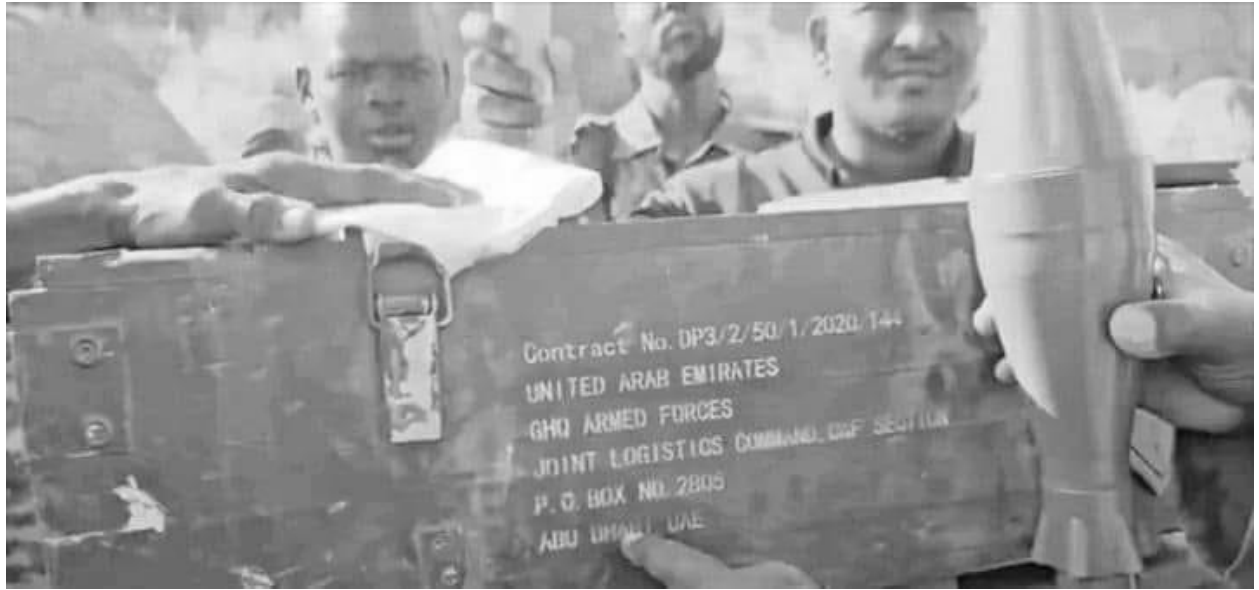 Contract No. DP3/2/50/1/2020/144
UNITED ARAB EMIRATES
GHQ ARMED FORCES
JOINT LOGISTICS COMMAND, SECTION
P.O. BOX NO. 2805
ABU DHABI UAE